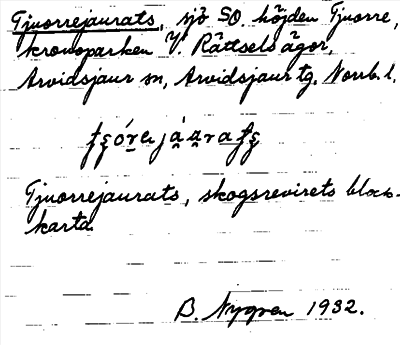 Tjuorrejaurats, sjö SO. höjden Tjuorre,
kronoparken V. Rättsels ägor,
Arvidsjaur sn, Arvidsjaur tg. Norrb. l.
Tjuorrejaurats, skogsrevirets block-
karta.
B. Nygren 1932.